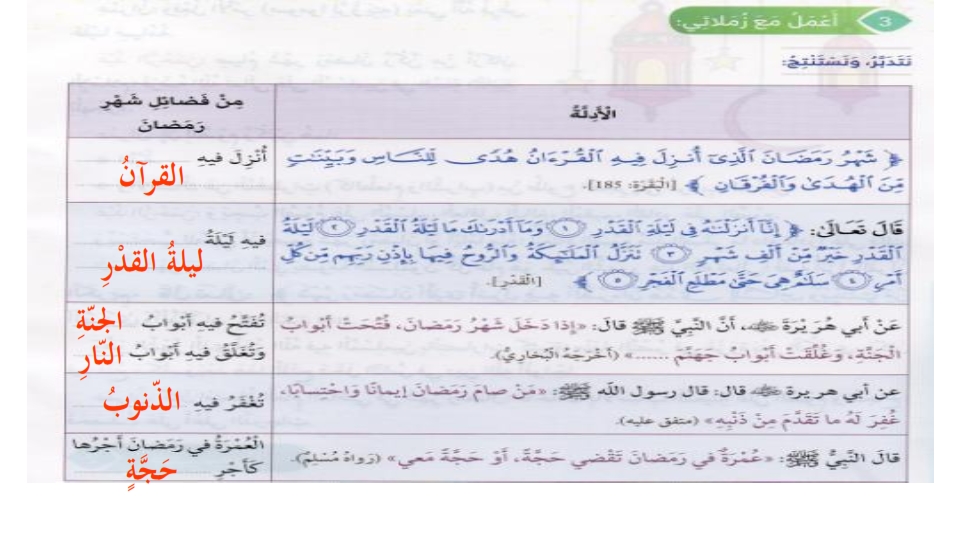 3 أَعْمَلُ مَعَ زُمَلائِي:
نَتَدَبَّرُ، وَنَسْتَنْتِجُ:
الْأَدِلَّةُ
مِنْ فَضَائِلِ شَهْرِ
رَمَضَانَ
﴿ شَهْرُ رَمَضَانَ ٱلَّذِىٓ أُنزِلَ فِيهِ ٱلْقُرْءَانُ هُدًى لِّلنَّاسِ وَبَيِّنَٰتٍ
مِّنَ ٱلْهُدَىٰ وَٱلْفُرْقَانِ ﴾ [الْبَقَرَة: 185].
أُنْزِلَ فيهِ
القرآنُ
قَالَ تَعَالَى: ﴿ إِنَّآ أَنزَلْنَٰهُ فِى لَيْلَةِ ٱلْقَدْرِ ١ وَمَآ أَدْرَىٰكَ مَا لَيْلَةُ ٱلْقَدْرِ ٢ لَيْلَةُ
ٱلْقَدْرِ خَيْرٌ مِّنْ أَلْفِ شَهْرٍ ٣ تَنَزَّلُ ٱلْمَلَٰٓئِكَةُ وَٱلرُّوحُ فِيهَا بِإِذْنِ رَبِّهِم مِّن كُلِّ
أَمْرٍ ٤ سَلَٰمٌ هِىَ حَتَّىٰ مَطْلَعِ ٱلْفَجْرِ ٥ ﴾ [القَدْر].
فيهِ لَيْلَةُ
ليلةُ القدْرِ
عَنْ أبي هُرَيْرَةَ رضي الله عنه، أَنَّ النَّبِيَّ ﷺ قالَ: «إِذا دَخَلَ شَهْرُ رَمَضانَ، فُتِّحَتْ أَبْوابُ
الْجَنَّةِ، وَغُلِّقَتْ أَبْوابُ جَهَنَّمَ ......» (أَخْرَجَهُ الْبُخَارِيُّ).
تُفَتَّحُ فيهِ أَبْوابُ الجنّةِ
وَتُغَلَّقُ فيهِ أَبْوابُ النّارِ
عن أبي هريرة رضي الله عنه قال: قال رسول الله ﷺ: «مَنْ صامَ رَمَضانَ إيمانًا وَاحْتِسابًا،
غُفِرَ لَهُ ما تَقَدَّمَ مِنْ ذَنْبِهِ» (متفق عليه).
تُغْفَرُ فيهِ الذّنوبُ
قالَ النَّبِيُّ ﷺ: «عُمْرَةٌ في رَمَضانَ تَقْضي حَجَّةً، أَوْ حَجَّةً مَعي» (رَواهُ مُسْلِمٌ).
الْعُمْرَةُ في رَمَضانَ أَجْرُها
كَأَجْرِ حَجَّةٍ